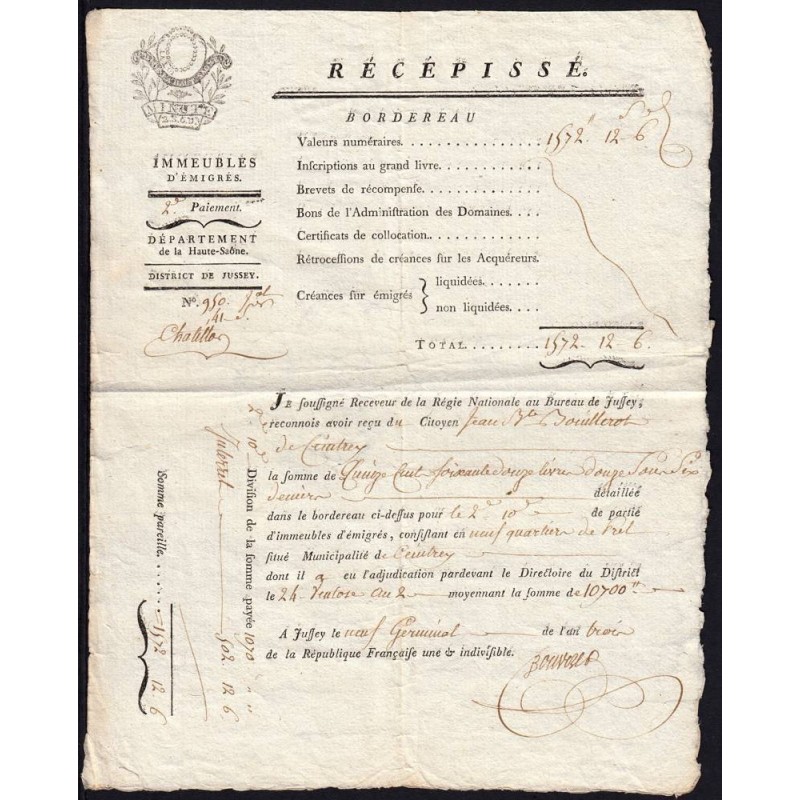 RÉCÉPISSÉ.
BORDEREAU
Valeurs numéraires. 1572 " 12 - 6
Inscriptions au grand livre.
Brevets de récompense.
Bons de l'Administration des Domaines.
Certificats de collocation.
Rétrocessions de créances sur les Acquéreurs.
Créances sur émigrés { liquidées.
non liquidées.
TOTAL. 1572 - 12 - 6
IMMEUBLES
D'ÉMIGRÉS.
2e Paiement.
DÉPARTEMENT
de la Haute-Saône.
DISTRICT DE JUSSEY.
No. 950.
41
Chatillon
JE soussigné Receveur de la Régie Nationale au Bureau de Jussey,
reconnois avoir reçu du Citoyen Jean Bte Bouillerot
de Cintrey
la somme de Quinze Cent soixante douze livres douze sous six
deniers détaillée
dans le bordereau ci-dessus pour le 2e 10e de partie
d'immeubles d'émigrés, consistant en neuf quartiers de
situé Municipalité de Centrey
dont il a eu l'adjudication pardevant le Directoire du District
le 24 Ventose an 2 moyennant la somme de 10700 "
A Jussey le neuf Germinal de l'an trois
de la République Française une & indivisible.
2e 10e Division de la somme payée 1070 " "
Interret 502 12 6
Somme pareille. 1572 12 6